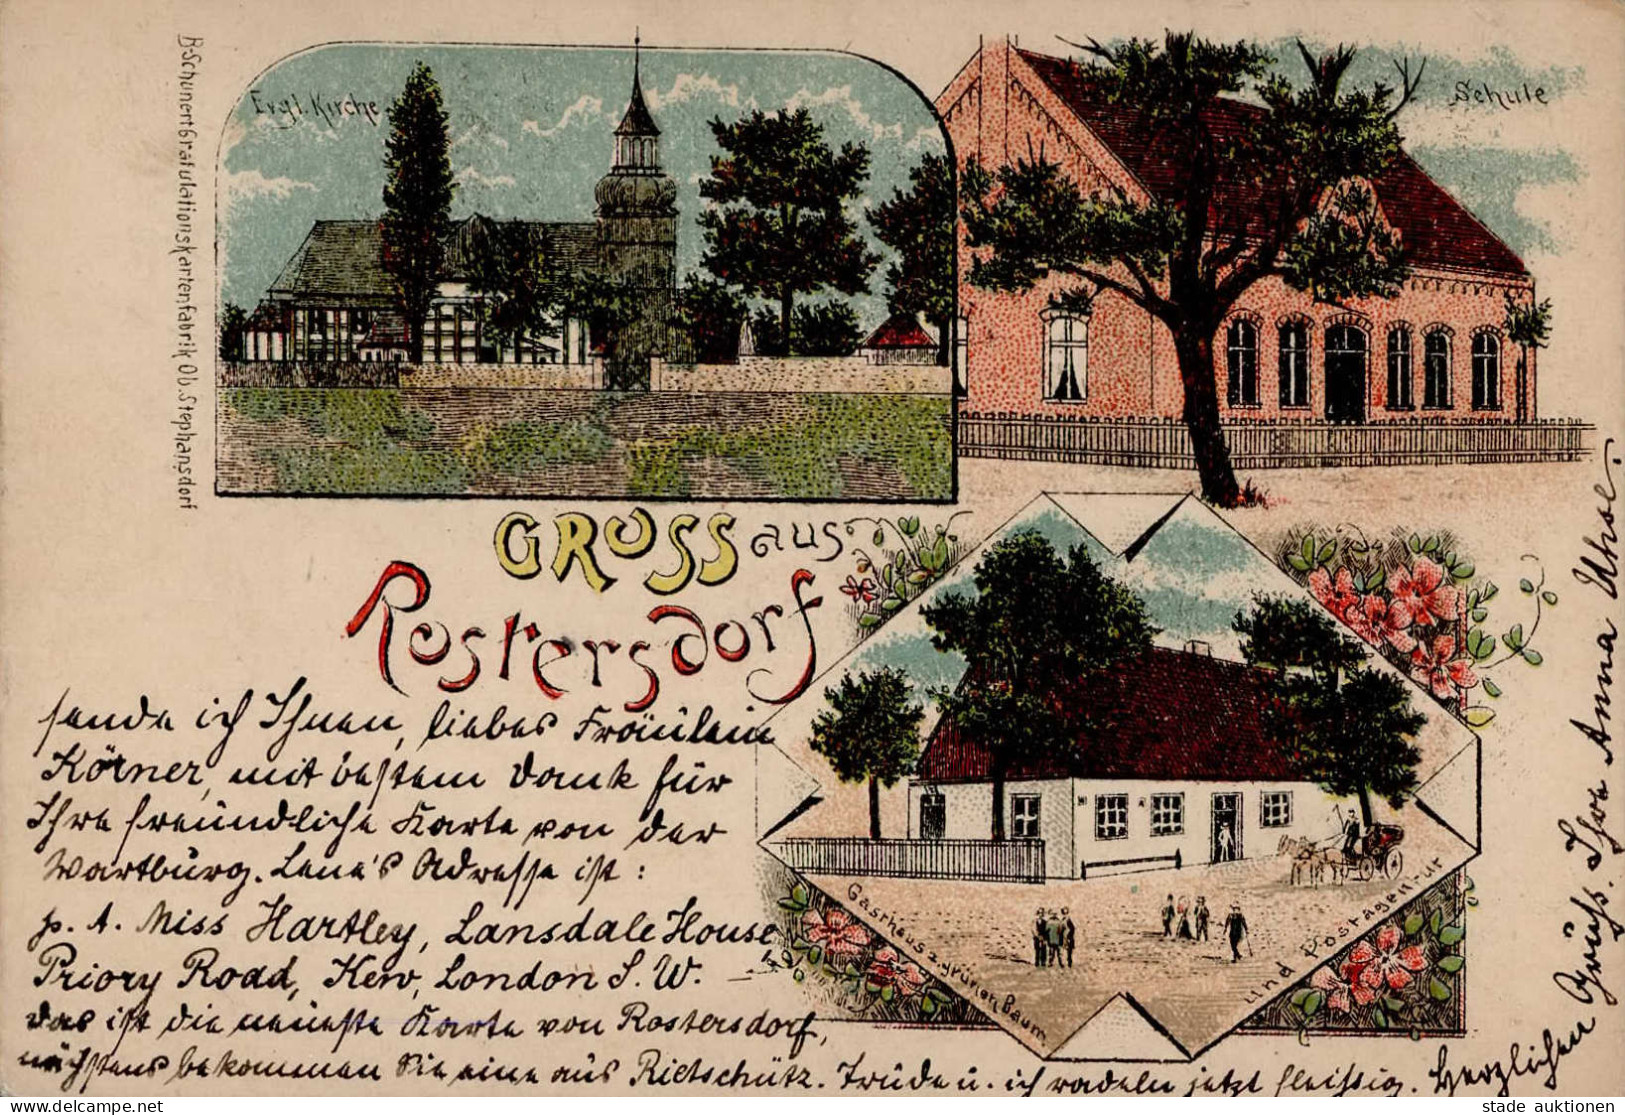 Evgl. Kirche
Schule
B. Schunert Gratulationskartenfabrik Ob. Stephansdorf
GRUSS aus
Rostersdorf
sende ich Ihnen, liebes Fräulein
Körner, mit bestem Dank für
Ihre freundliche Karte von der
Wartburg. Lene's Adresse ist:
p. A. Miss Hartley, Lansdale House
Priory Road, Kew, London S. W.
Das ist die neueste Karte von Rostersdorf,
nächstens bekommen Sie eine aus Rietschütz. Trude u. ich radeln jetzt fleißig. Herzlichen
Gruß. Ihre Anna Uhse.
Gasthaus z. grünen Baum
und Postagentur
(C) delcampe.net
stade_auktionen